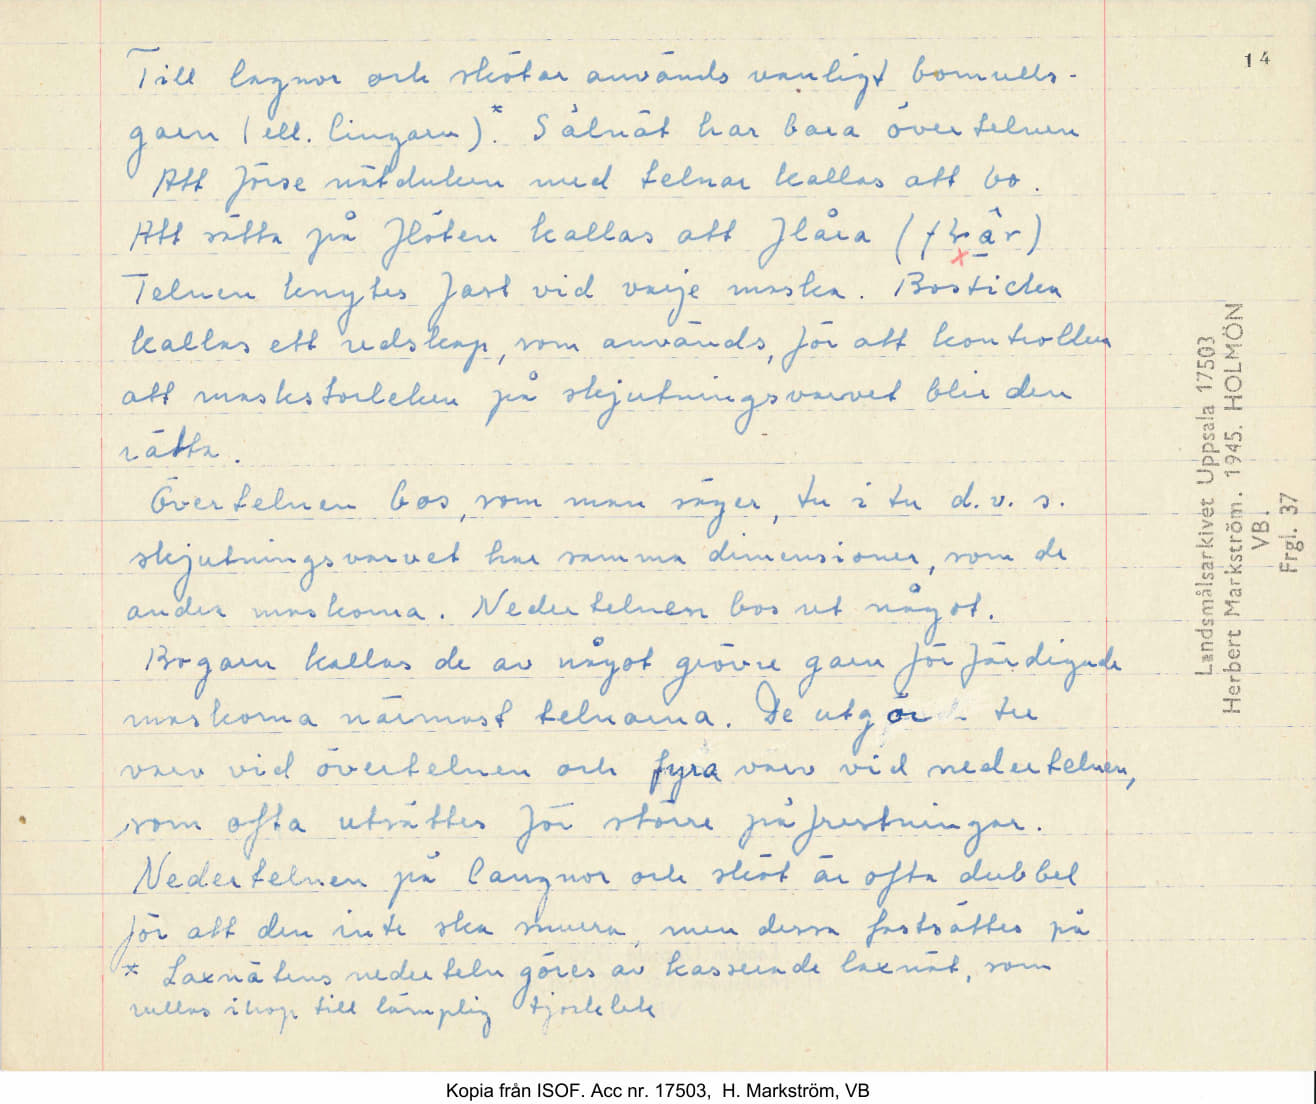 14
Till lagnor och skötar används vanligt bomulls-
garn (ell. lingarn)*. Sälnät har bara övertelnen
Att förse nätduken med telnar kallas att bo.
Att sätta på flöten kallas att flåra
Telnen knytes fast vid varje maska. Bosticka
kallas ett redskap, som används, för att kontrollera
att maskstorleken på skjutningsvarvet blir den
rätta.
Övertelnen bos, som man säger, tu i tu d.v.s.
skjutningsvarvet har samma dimensioner, som de
andra maskorna. Nedertelnen bos ut något.
Bogarn kallas de av något grövre garn förfärdigade
maskorna närmast telnarna. De utgör tre
varv vid övertelnen och fyra varv vid nedertelnen,
som ofta utsättes för större påfrestningar.
Nedertelnen på langnor och sköt är ofta dubbel
för att den inte ska snurra, men dessa fastsättes på
* Laxnätens nederteln göres av kasserade laxnät, som
rullas ihop till lämplig tjocklek
Landsmålsarkivet Uppsala 17503
Herbert Markström. 1945. HOLMÖN
VB.
Frgl. 37
Kopia från ISOF. Acc nr. 17503, H. Markström, VB